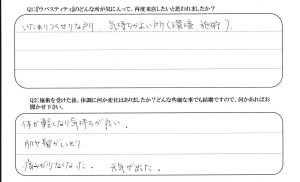 Q1:『ウパスティティ』のどんな所が気に入って、再度来店したいと思われましたか？
いたれりつくせりな所。気持ちがよい所（環境、施術）。
Q2:施術を受けた後、体調に何か変化はありましたか？どんな些細な事でも結構ですので、何かあればお聞かせ下さい。
体が軽くなり気持ちが良い。
肌や髪がしっとり。
痛みが少なくなった。 元気が出た。